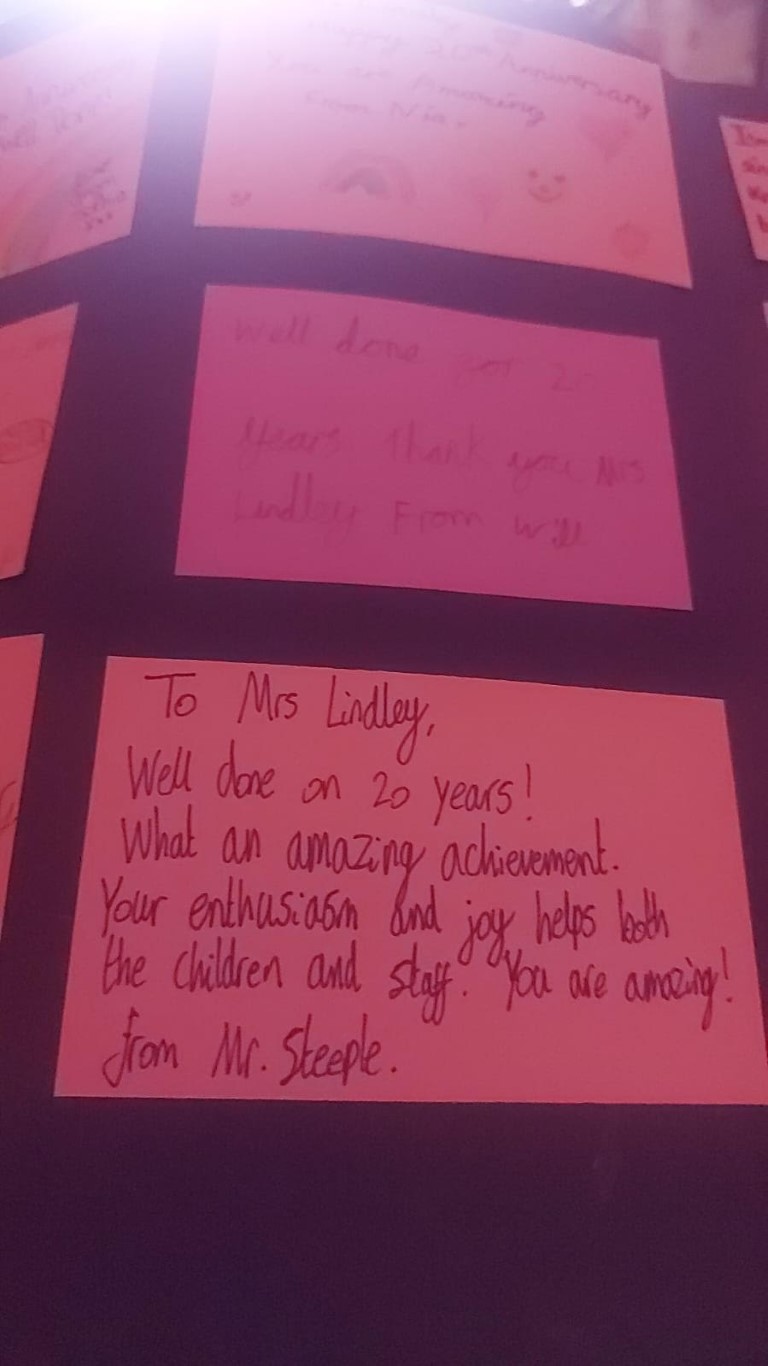 Happy 20th Anniversary
You are Amazing
from Nia.
Well done for 20
Years Thank you Mrs
Lindley From Will
To Mrs Lindley,
Well done on 20 years!
What an amazing achievement.
Your enthusiasm and joy helps both
the children and staff. You are amazing!
from Mr. Steeple.